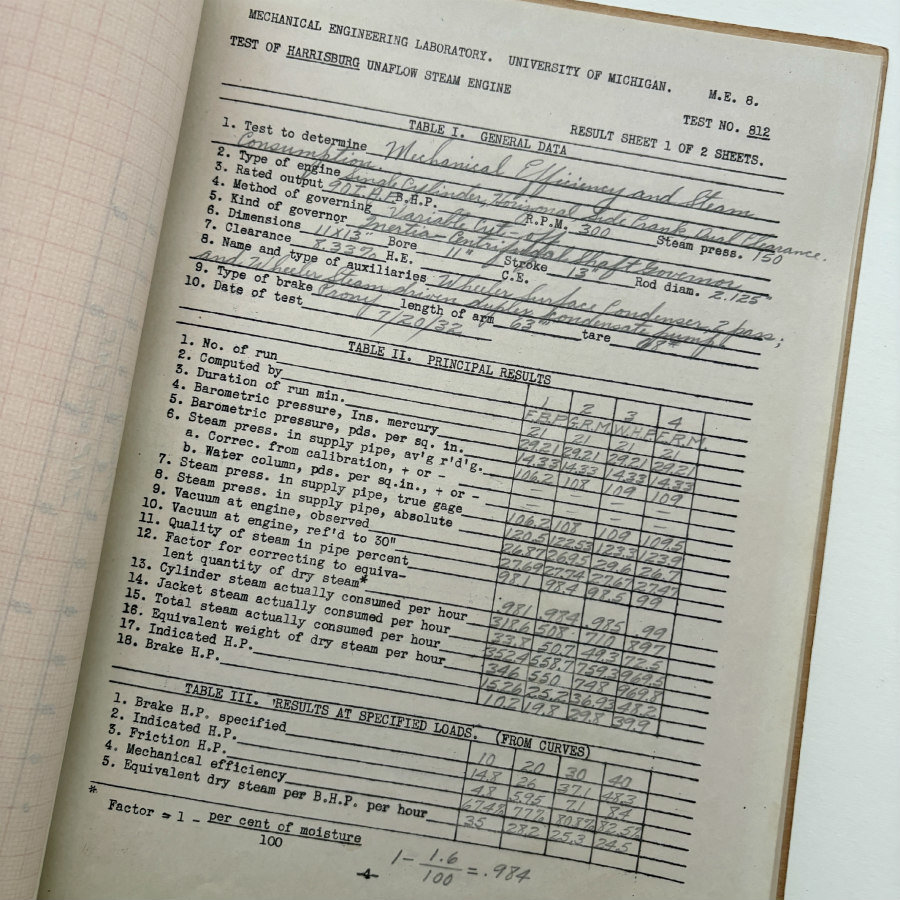 MECHANICAL ENGINEERING LABORATORY. UNIVERSITY OF MICHIGAN. M.E. 8.
TEST OF HARRISBURG UNAFLOW STEAM ENGINE TEST NO. 812
RESULT SHEET 1 OF 2 SHEETS.
TABLE I. GENERAL DATA
1. Test to determine Mechanical Efficiency and Steam
Consumption
2. Type of engine Single Cylinder, Horizontal Side Crank Dual Clearance.
3. Rated output 90 I.H.P. B.H.P. R.P.M. 300 Steam press. 150
4. Method of governing Variable Cut-off
5. Kind of governor Inertia-Centrifugal Shaft Governor
6. Dimensions 11 X 13" Bore 11" Stroke 13" Rod diam. 2.125"
7. Clearance 8.33% H.E. C.E.
8. Name and type of auxiliaries Wheeler Surface Condenser, 2 pass;
and Wheeler Steam driven duplex condensate pump.
9. Type of brake Prony length of arm 63" tare
10. Date of test 7/20/32
TABLE II. PRINCIPAL RESULTS
1. No. of run 1 2 3 4
2. Computed by F.B.P. G.R.M. W.H.P. F.R.M.
3. Duration of run min. 21 21 21 21
4. Barometric pressure, Ins. mercury 29.21 29.21 29.21 29.21
5. Barometric pressure, pds. per sq. in. 14.33 14.33 14.33 14.33
6. Steam press. in supply pipe, av'g r'd'g. 106.2 108 109 109
a. Correc. from calibration, + or - — — — —
b. Water column, pds. per sq.in., + or - — — — —
7. Steam press. in supply pipe, true gage 106.2 108 109 109.5
8. Steam press. in supply pipe, absolute 120.5 122.53 123.3 123.9
9. Vacuum at engine, observed 26.87 26.95 26.6 26.7
10. Vacuum at engine, ref'd to 30" 27.69 27.74 27.67 27.47
11. Quality of steam in pipe percent 98.1 98.4 98.5 99
12. Factor for correcting to equiva-
lent quantity of dry steam* .981 .984 .985 .99
13. Cylinder steam actually consumed per hour 318.6 508 710 897
14. Jacket steam actually consumed per hour 33.8 50.7 49.3 72.5
15. Total steam actually consumed per hour 352.4 558.7 759.3 969.5
16. Equivalent weight of dry steam per hour 346 550 748 969.8
17. Indicated H.P. 15.26 25.2 36.93 48.2
18. Brake H.P. 10.2 19.8 29.8 39.9
TABLE III. RESULTS AT SPECIFIED LOADS. (FROM CURVES)
1. Brake H.P. specified 10 20 30 40
2. Indicated H.P. 14.8 26 37.1 48.3
3. Friction H.P. 4.8 5.95 7.1 8.4
4. Mechanical efficiency 67.4% 77% 80.8% 82.5%
5. Equivalent dry steam per B.H.P. per hour 35 28.2 25.3 24.5
* Factor = 1 - per cent of moisture
100
1 - 1.6/100 = .984
-4-